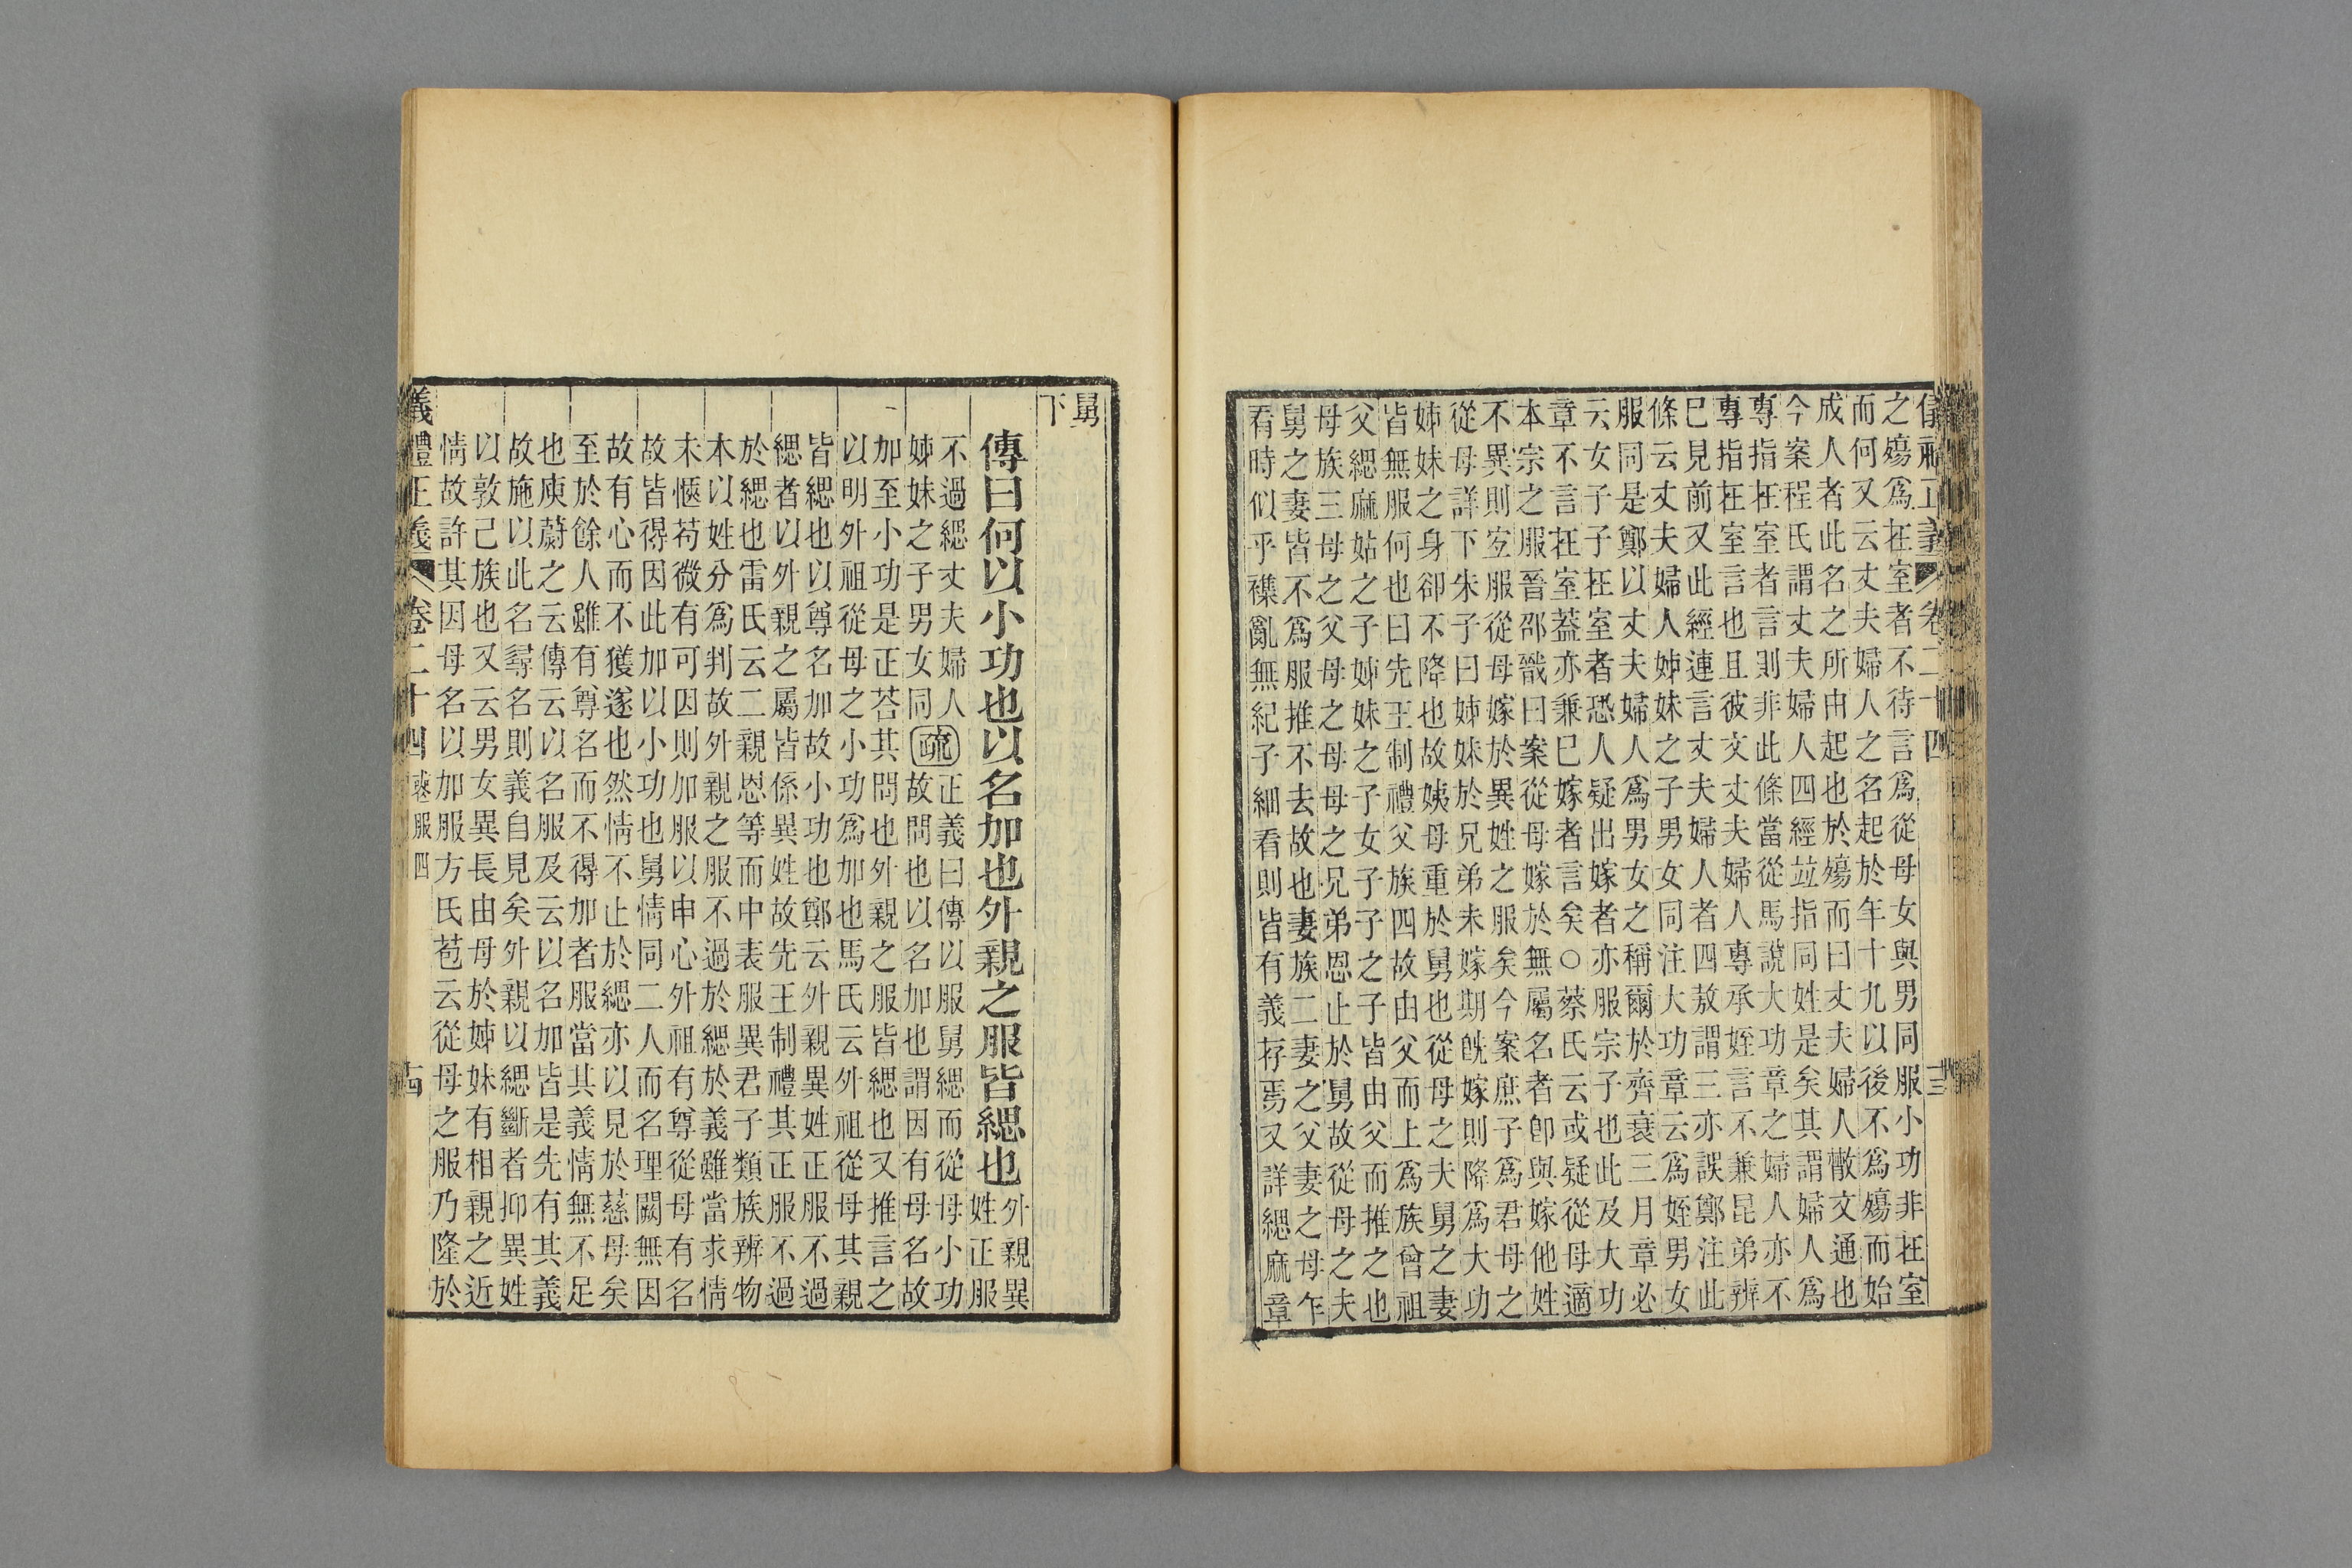 儀禮正義 卷二十四 十三
之殤爲在室者不待言爲從母女與男同服小功非在室
而何又云丈夫婦人之名起於年十九以後不爲殤而始
成人者此名之所由起也於殤而曰丈夫婦人散文通也
今案程氏謂丈夫婦人四經並指同姓是矣其謂婦人爲
專指在室者言則非此條當從馬說大功章之婦人亦不
專指在室言也且彼文丈夫婦人專承姪言不兼昆弟辨
已見前又此經連言丈夫婦人者四敖謂三亦誤鄭注此
條云丈夫婦人姊妹之子男女同注大功章云爲姪男女
服同是鄭以丈夫婦人爲男女之稱爾於齊衰三月章必
云女子子在室者恐人疑出嫁者亦服宗子也此及大功
章不言在室蓋亦兼已嫁者言矣○蔡氏云或疑從母適
本宗之服晉邵戩曰案從母嫁於無屬名者卽與嫁他姓
不異則宜服從母嫁於異姓之服矣今案庶子爲君母之
從母詳下朱子曰姊妹於兄弟未嫁期旣嫁則降爲大功
姊妹之身卻不降也故姨母重於舅也從母之夫舅之妻
皆無服何也曰先王制禮父族四故由父而上爲族曾祖
父緦麻姑之子姊妹之子女子子之子皆由父而推之也
母族三母之父母之母母之兄弟恩止於舅故從母之夫
舅之妻皆不爲服推不去故也妻族二妻之父妻之母乍
看時似乎襍亂無紀子細看則皆有義存焉又詳緦麻章
舅
下
傳曰何以小功也以名加也外親之服皆緦也外親異
姓正服
不過緦丈夫婦人
姊妹之子男女同
疏
正義曰傳以服舅緦而從母小功
故問也以名加也謂因有母名故
加至小功是正荅其問也外親之服皆緦也又推言之
以明外祖從母之小功爲加也馬氏云外祖從母其親
皆緦也以尊名加故小功也鄭云外親異姓正服不過
緦者以外親之屬皆係異姓故先王制禮其正服不過
於緦也雷氏云二親恩等而中表服異君子類族辨物
本以姓分爲判故外親之服不過於緦於義雖當求情
未愜苟微有可因則加服以申心外祖有尊從母有名
故皆得因此加以小功也舅情同二人而名理闕無因
故有心而不獲遂也然情不止於緦亦以見於慈母矣
至於餘人雖有尊名而不得加者服當其義情無不足
也庾蔚之云傳云以名服及云以名加皆是先有其義
故施以此名尋名則義自見矣外親以緦斷者抑異姓
以敦己族也又云男女異長由母於姊妹有相親之近
情故許其因母名以加服方氏苞云從母之服乃隆於
儀禮正義 卷二十四 喪服四 十四